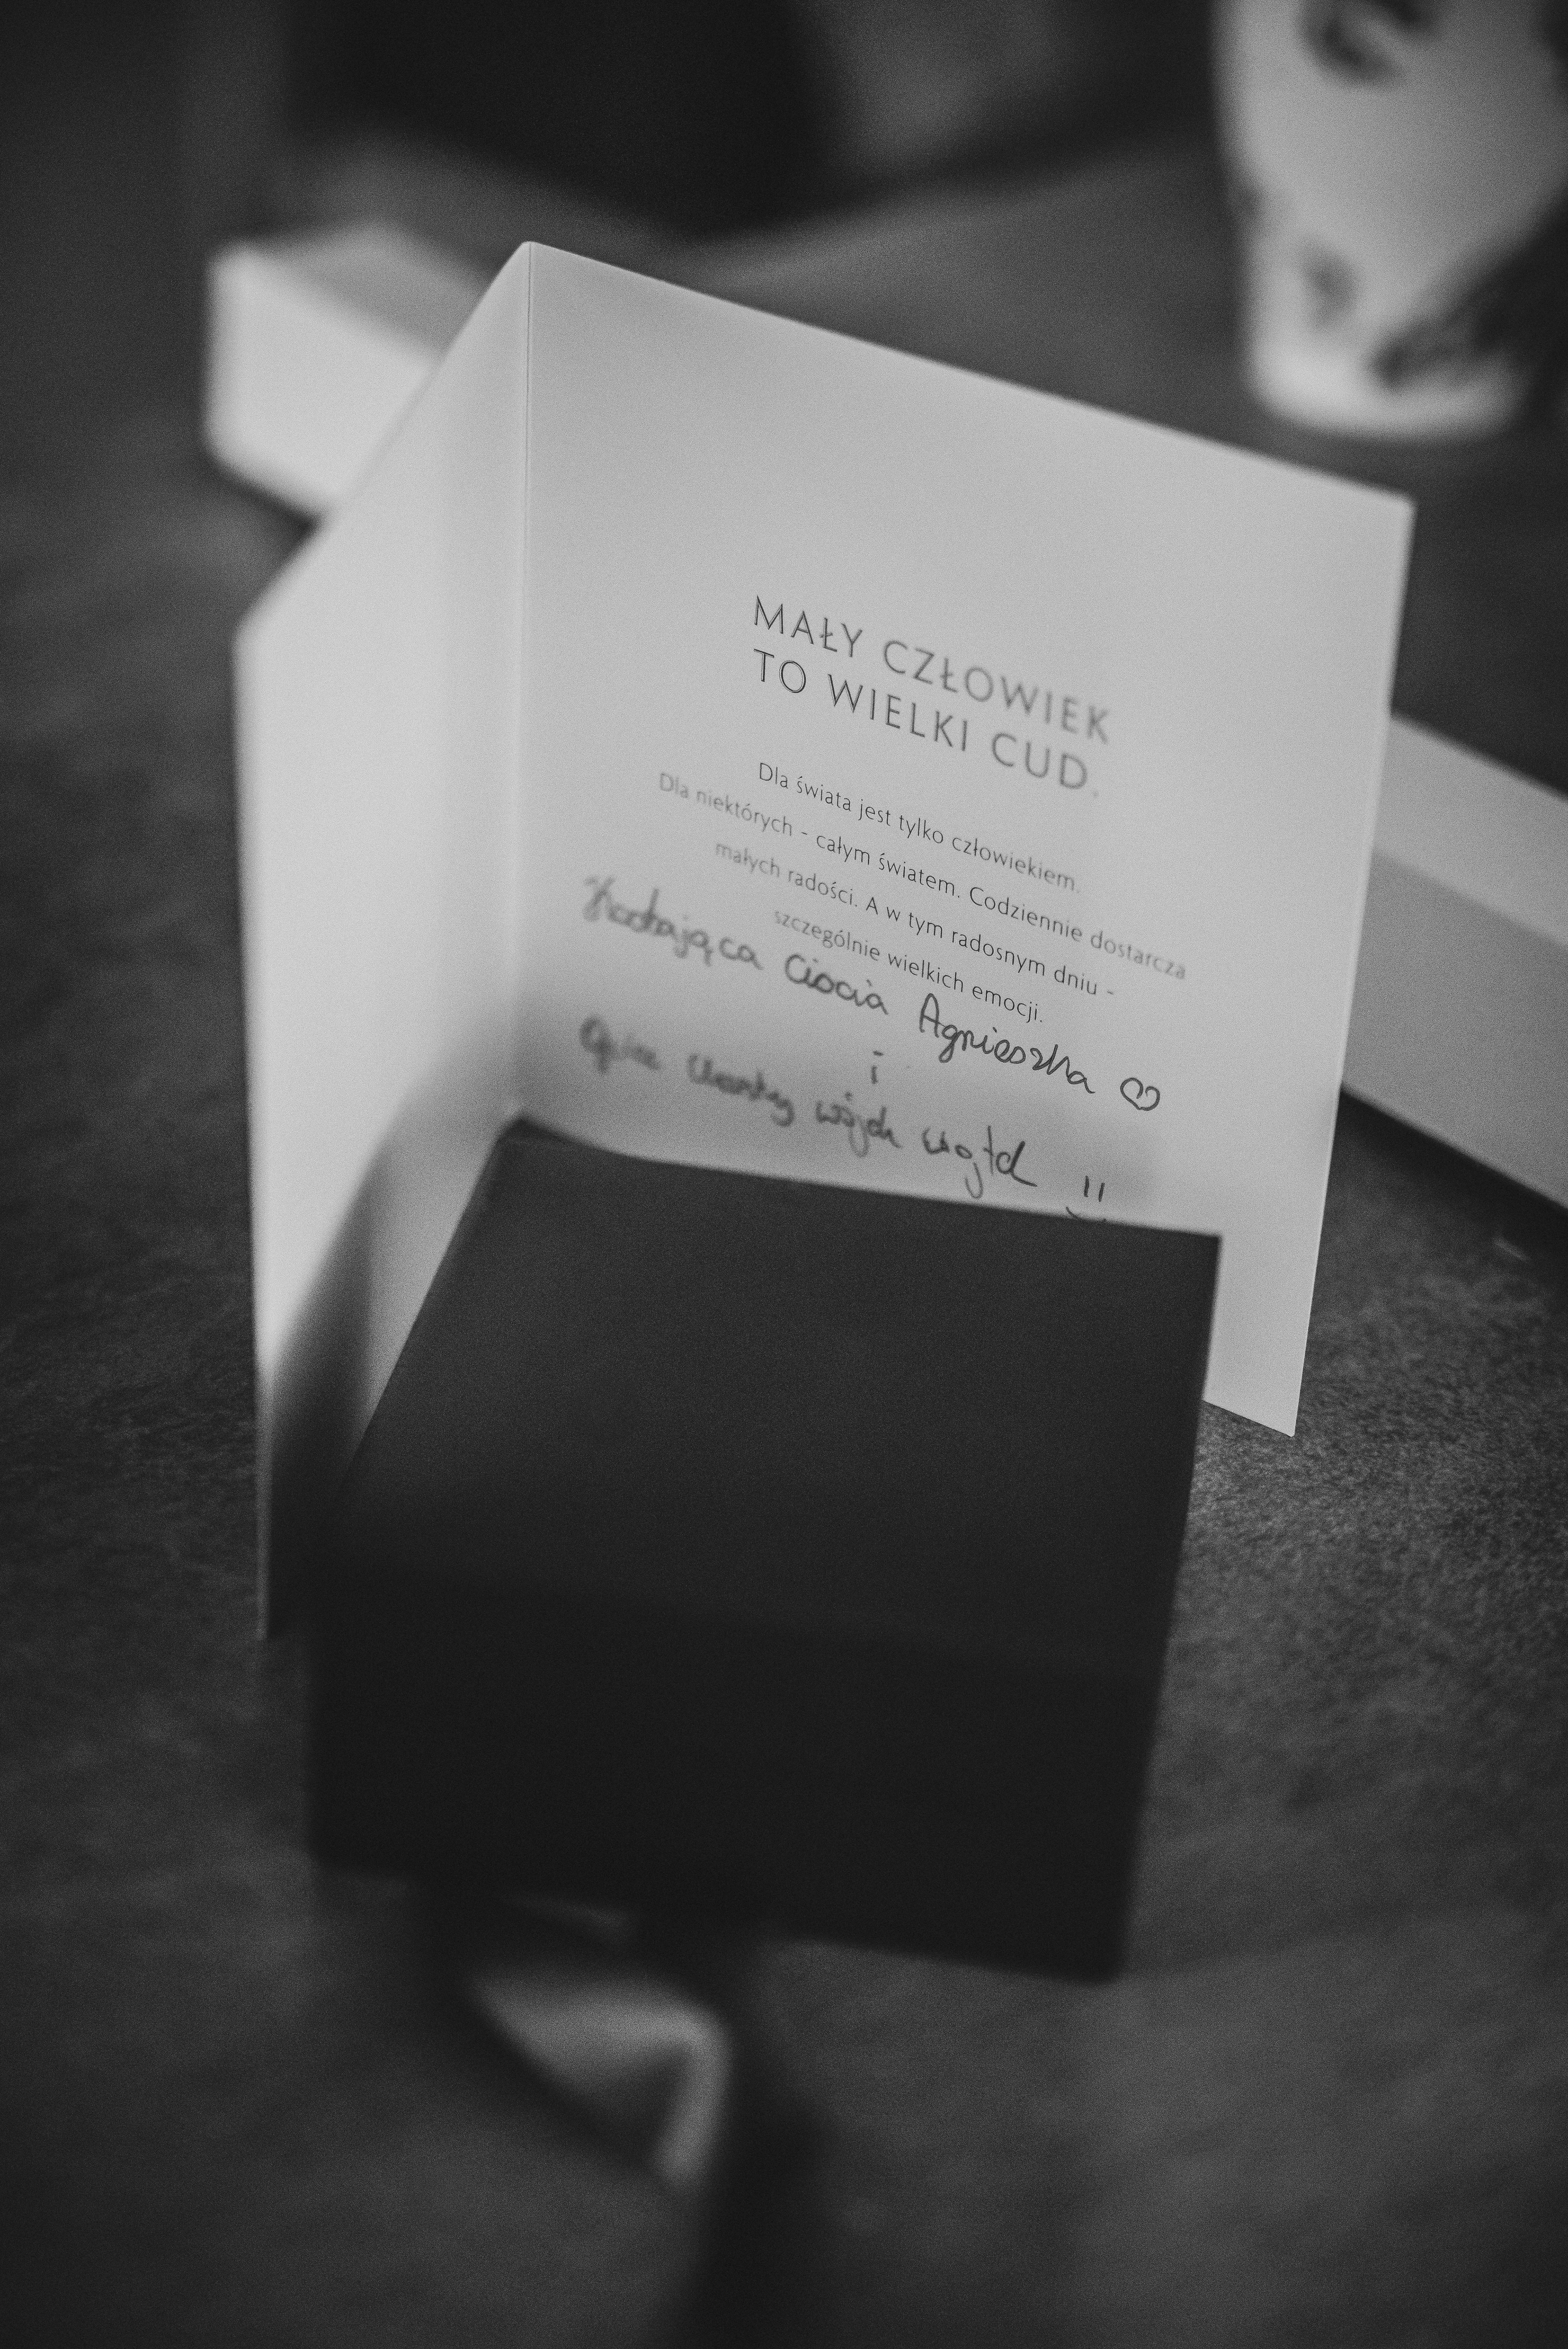 MAŁY CZŁOWIEK
TO WIELKI CUD.
Dla świata jest tylko człowiekiem.
Dla niektórych - całym światem. Codziennie dostarcza
małych radości. A w tym radosnym dniu -
szczególnie wielkich emocji.
Kochająca Ciocia Agnieszka ♡
i